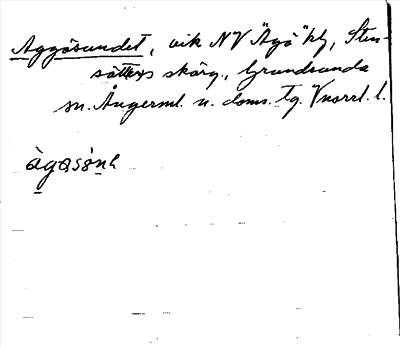 Aggösundet, vik NV "Ågö" hg, Sten-
sätters skärg., Grundsunda
sn. Ångerml. n. doms. tg. Vnorrl. l.
àgasònh